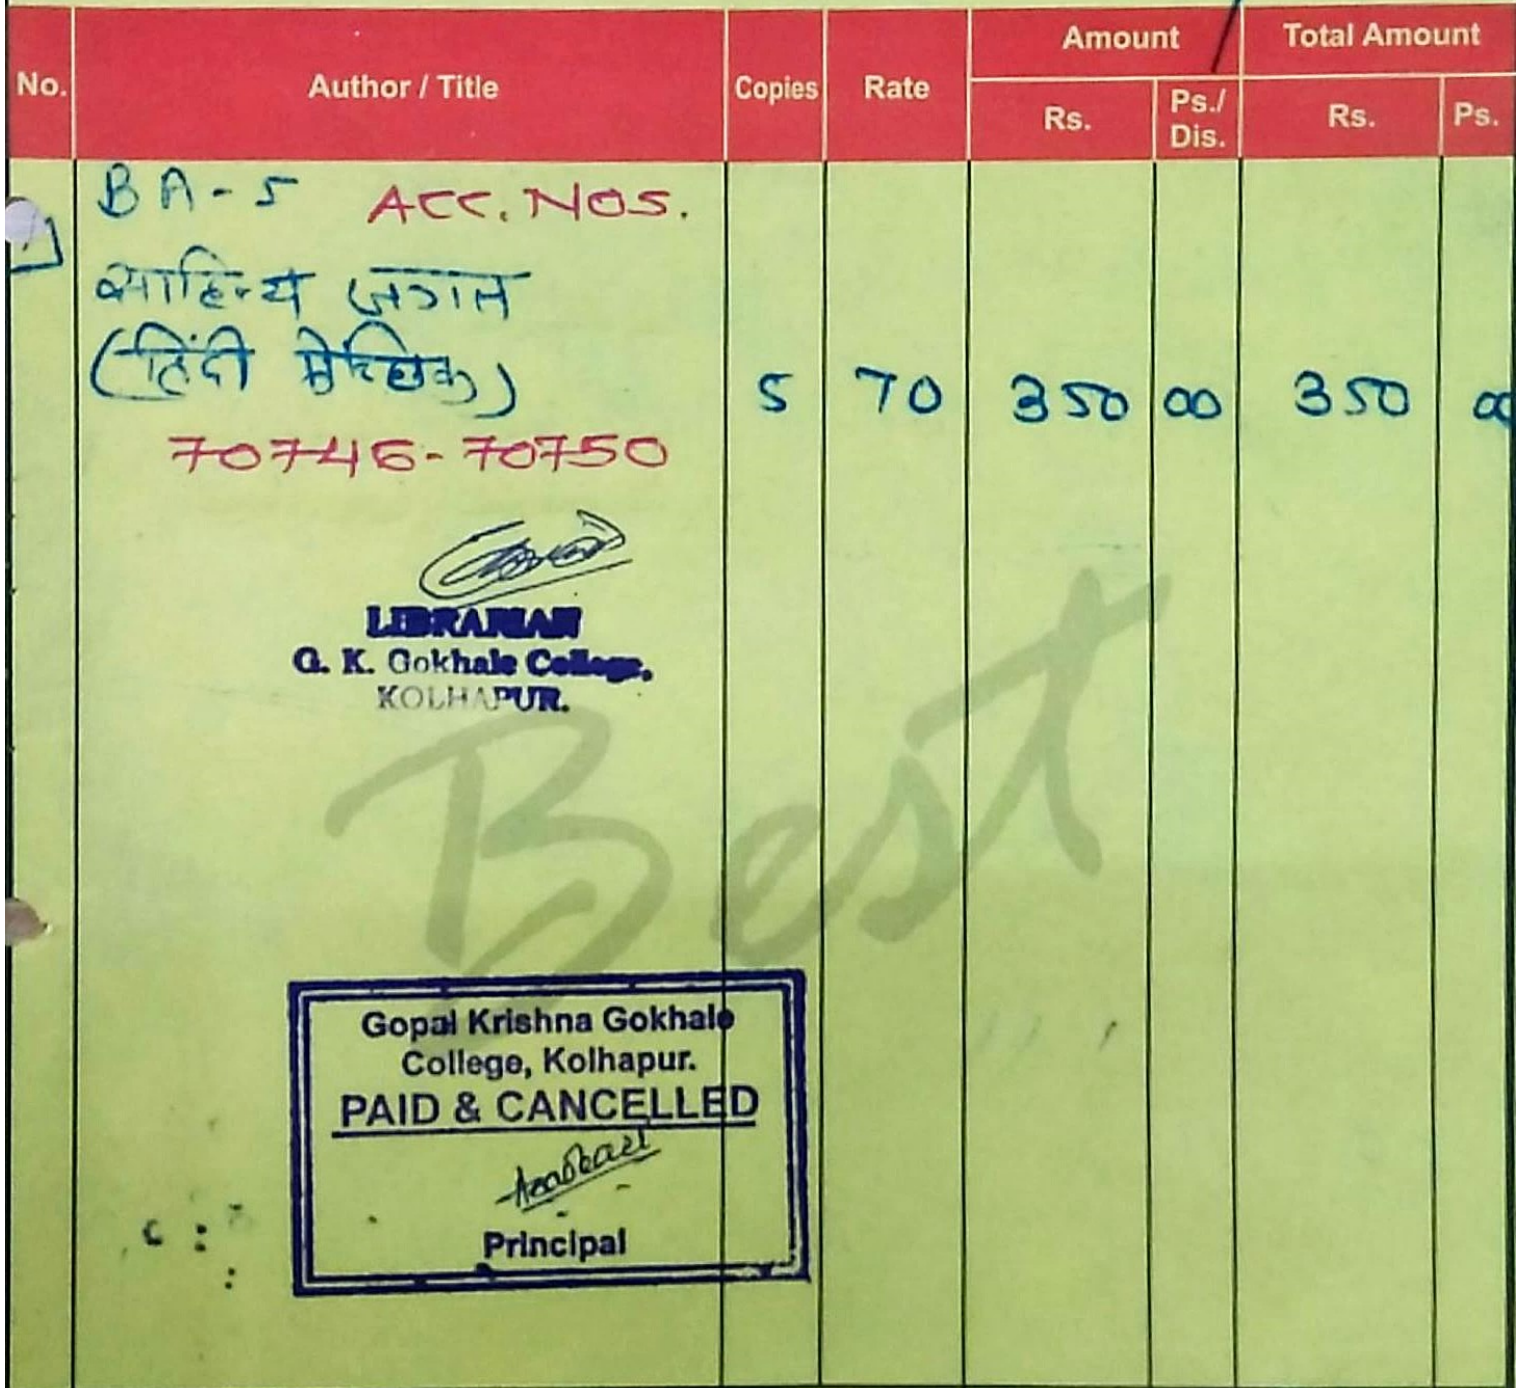 No. Author / Title Copies Rate Amount Total Amount
Rs. Ps./ Dis. Rs. Ps.
BA-5 ACC. NOS.
साहित्य जगत
(हिंदी ऐच्छिक) 5 70 350 00 350 00
70746-70750
LIBRARIAN
G. K. Gokhale College,
KOLHAPUR.
Best
Gopal Krishna Gokhale
College, Kolhapur.
PAID & CANCELLED
Principal